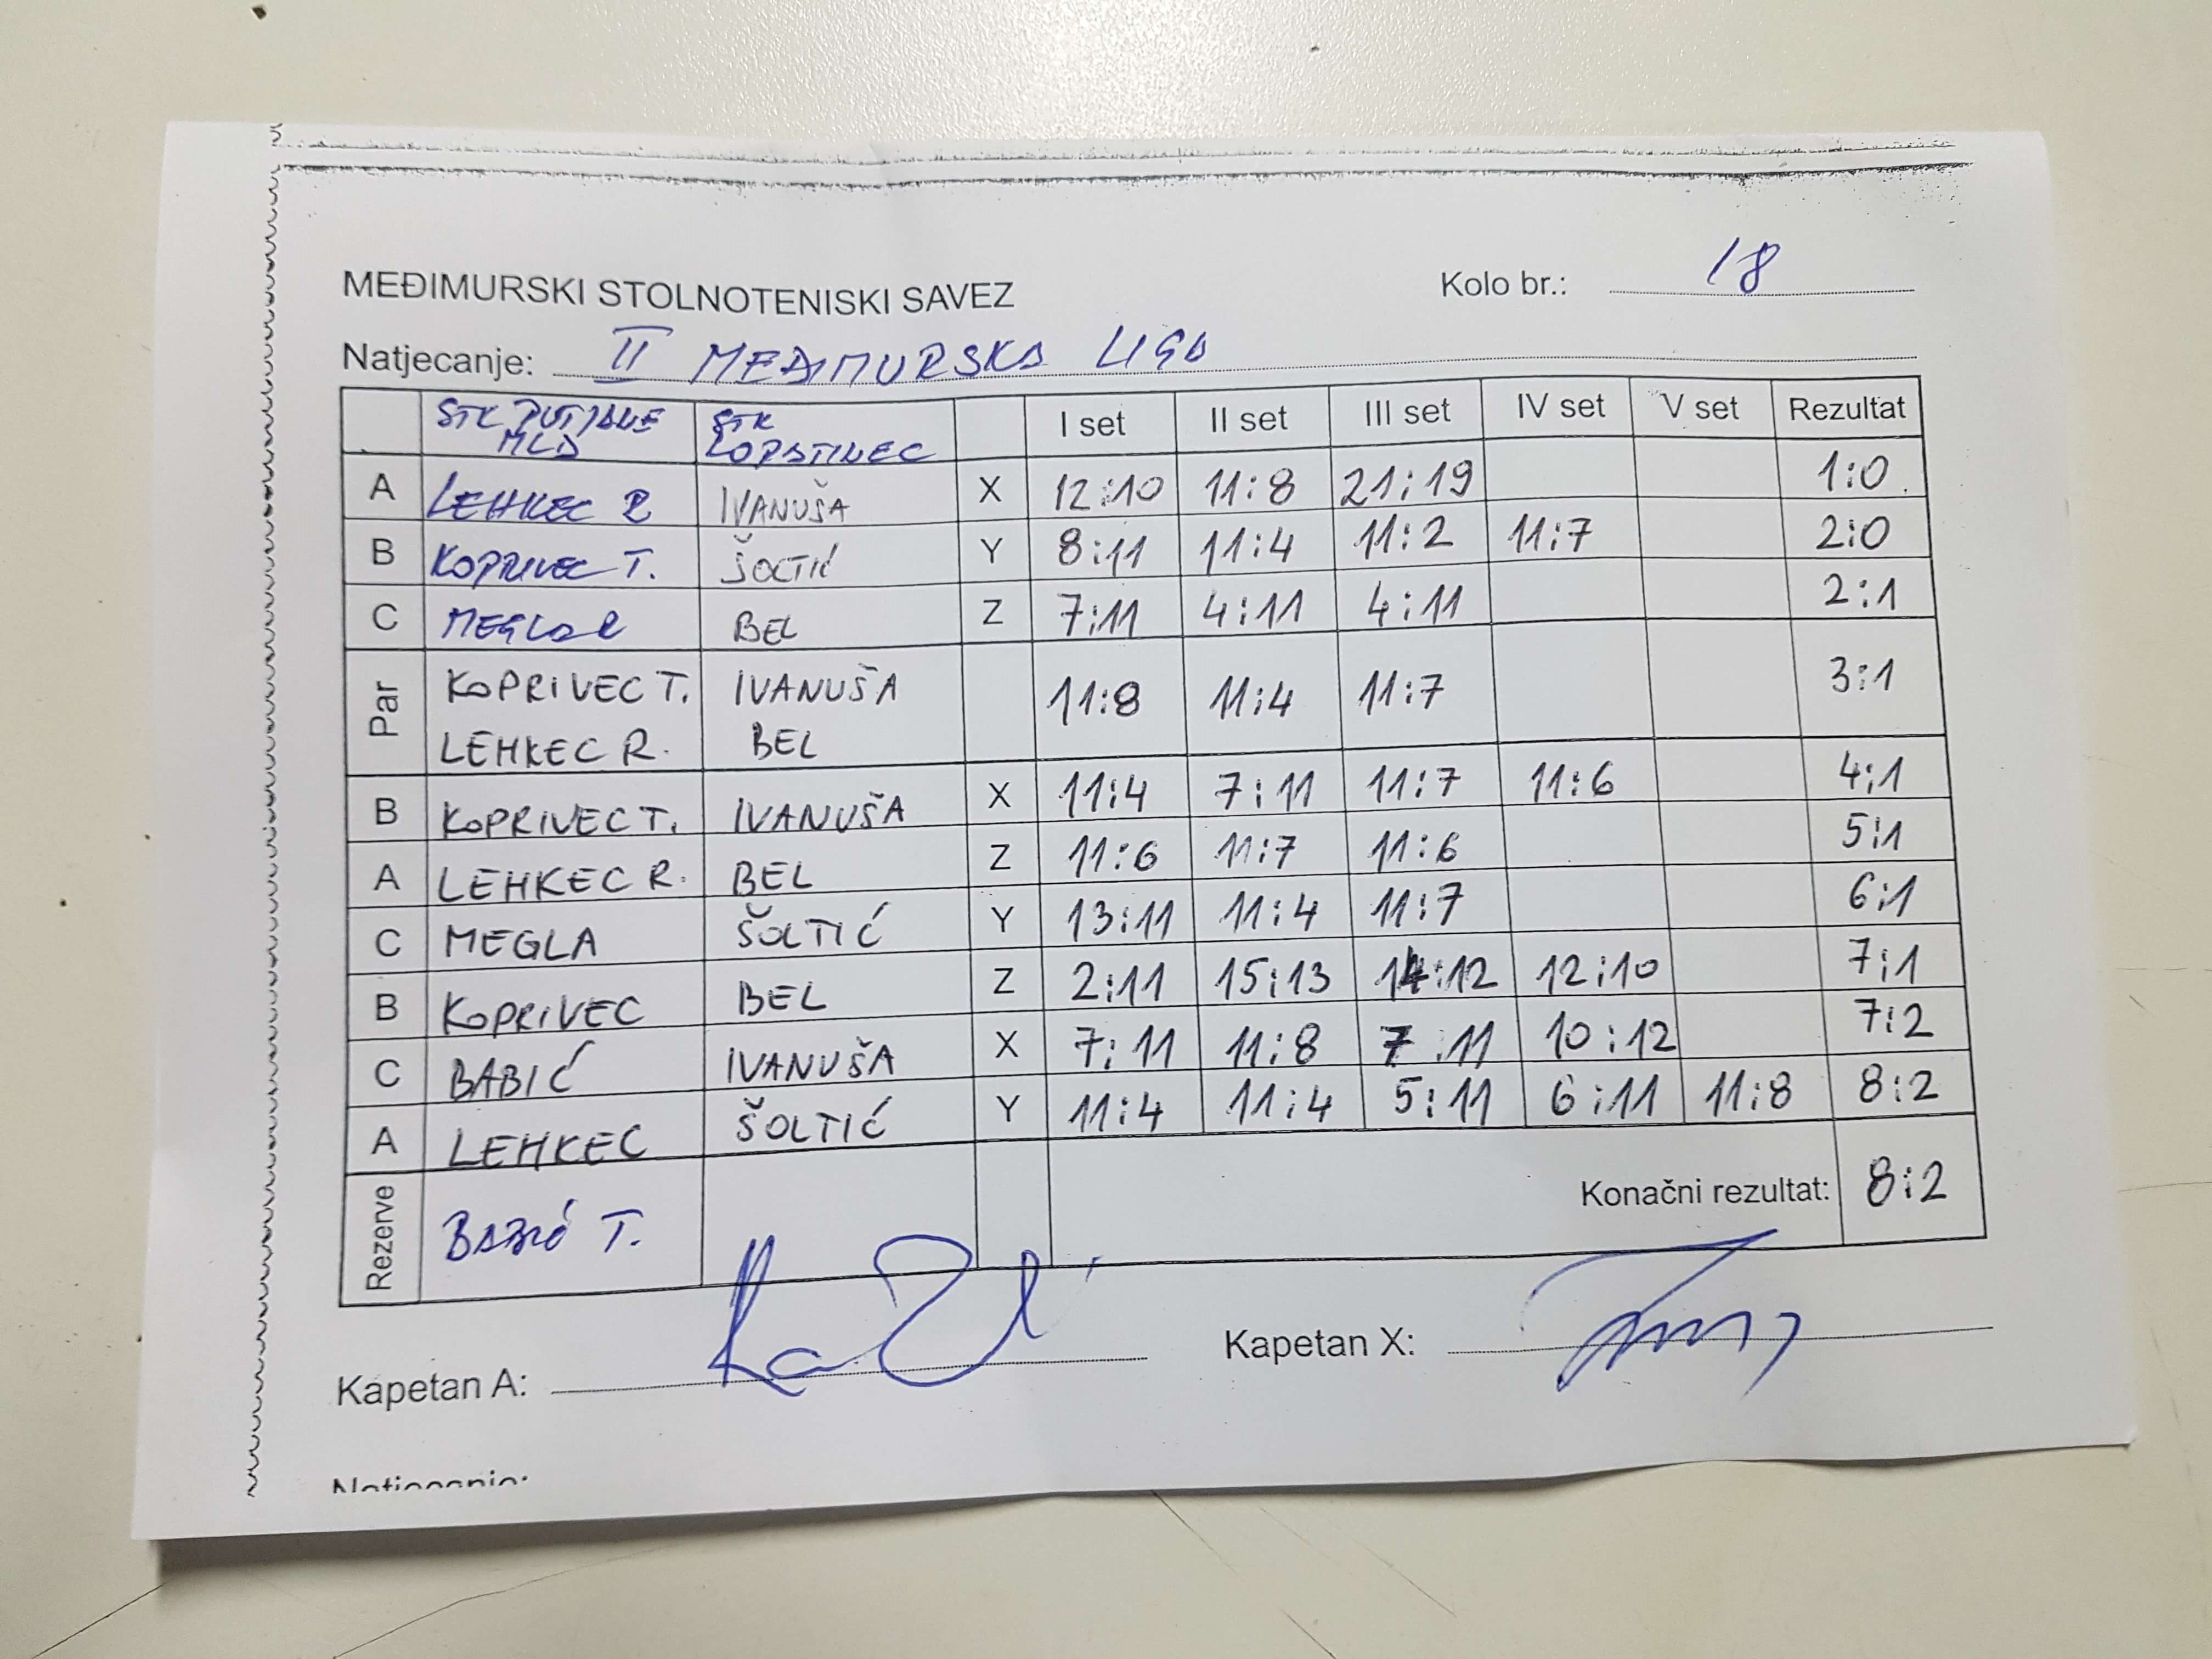 MEĐIMURSKI STOLNOTENISKI SAVEZ Kolo br.: 18
Natjecanje: II MEĐIMURSKA LIGA
STK PUTJANE MLA STK LOPATINEC I set II set III set IV set V set Rezultat
A LEHKEC R IVANUŠA X 12:10 11:8 21:19 1:0
B KOPRIVEC T. ŠOLTIĆ Y 8:11 11:4 11:2 11:7 2:0
C MEGLA R BEL Z 7:11 4:11 4:11 2:1
Par KOPRIVEC T. IVANUŠA 11:8 11:4 11:7 3:1
LEHKEC R. BEL
B KOPRIVEC T. IVANUŠA X 11:4 7:11 11:7 11:6 4:1
A LEHKEC R. BEL Z 11:6 11:7 11:6 5:1
C MEGLA ŠOLTIĆ Y 13:11 11:4 11:7 6:1
B KOPRIVEC BEL Z 2:11 15:13 14:12 12:10 7:1
C BABIĆ IVANUŠA X 7:11 11:8 7:11 10:12 7:2
A LEHKEC ŠOLTIĆ Y 11:4 11:4 5:11 6:11 11:8 8:2
Rezerve BABIĆ T. Konačni rezultat: 8:2
Kapetan A: Kapetan X:
Natjecanje: